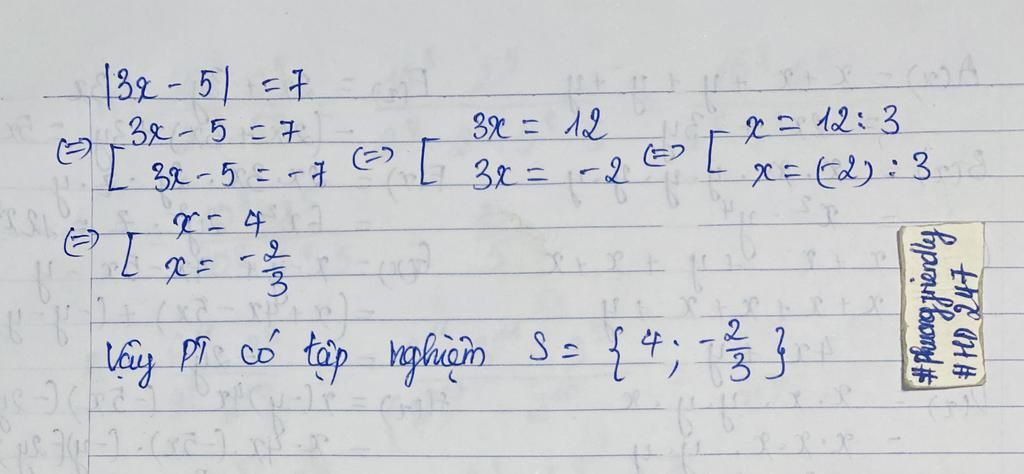 |3x - 5| = 7
(=) [ 3x - 5 = 7 (=) [ 3x = 12 (=) [ x = 12 : 3
3x - 5 = -7 3x = -2 x = (-2) : 3
(=) [ x = 4
x = -2/3
Vậy PT có tập nghiệm S = {4; -2/3}
#Phuongfriendly
#HD 247